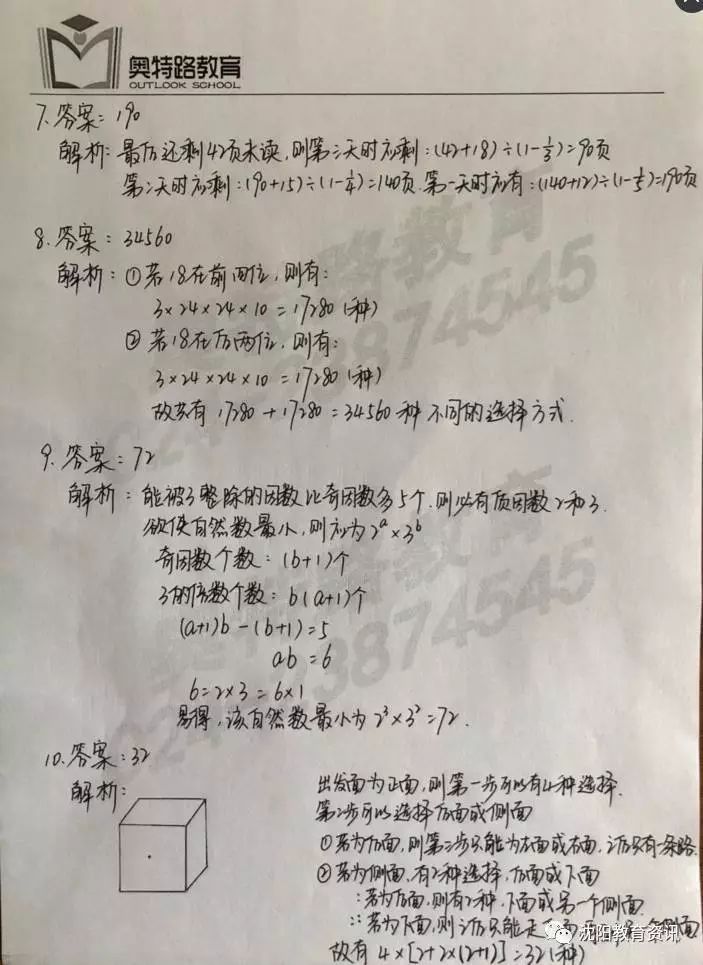 奥特路教育
OUTLOOK SCHOOL
7.答案:190
解析:最后还剩42页未读,则第三天时应剩:(42+18)÷(1-1/3)=90页
第二天时应剩:(90+15)÷(1-1/4)=140页.第一天时应有:(140+12)÷(1-1/5)=190页
8.答案:34560
解析:①若18在前两位,则有:
3×24×24×10=17280(种)
②若18在后两位,则有:
3×24×24×10=17280(种)
故共有17280+17280=34560种不同的选择方式.
9.答案:72
解析:能被3整除的因数比奇因数多5个,则必有质因数2和3.
欲使自然数最小,则应为2ᵃ×3ᵇ
奇因数个数:(b+1)个
3的倍数个数:b(a+1)个
(a+1)b-(b+1)=5
ab=6
6=2×3=6×1
易得,该自然数最小为2³×3²=72.
10.答案:32
解析:
出发面为正面,则第一步可以有4种选择.
第2步可以选择后面或侧面
①若为后面,则第三步只能为左面或右面,之后只有一条路.
②若为侧面,有2种选择,后面或下面
:若为后面,则有2种,下面或另一个侧面.
::若为下面,则之后只能走 面 个侧面
故有4×[2+2×(2+1)]=32(种)
路教育
3874545
路教育
024 73874545
沈阳教育资讯